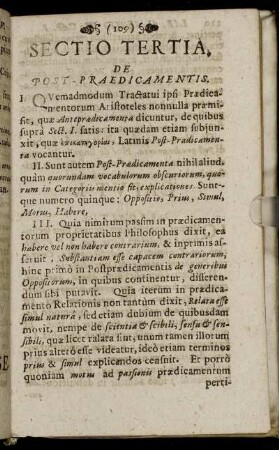 § (109) §
SECTIO TERTIA,
DE
POST-PRAEDICAMENTIS.
I. QVemadmodum Tractatui ipſi Prædica-
mentorum Ariſtoteles nonnulla præmi-
ſit, quæ Anteprædicamenta dicuntur, de quibus
ſuprà Sect. I. ſatis: ita quædam etiam ſubjun-
xit, quæ Latinis Poſt-Prædicamen-
ta vocantur.
II. Sunt autem Poſt-Prædicamenta nihil aliud,
quàm quorundam vocabulorum obſcuriorum, quo-
rum in Categoriis mentio fit, explicationes. Sunt-
que numero quinque: Oppoſitio, Prius, Simul,
Motus, Habere,
III. Quia nimirum paſſim in prædicamen-
torum proprietatibus Philoſophus dixit, ea
habere vel non habere contrarium, & inprimis aſ-
ſeruit, Subſtantiam eſſe capacem contrariorum;
hinc primò in Poſtprædicamentis de generibus
Oppoſitorum, in quibus continentur, diſſeren-
dum ſibi putavit. Quia iterum in prædica-
mento Relationis non tantùm dixit, Relata eſſe
ſimul naturâ, ſed etiam dubium de quibusdam
movit, nempe de ſcientia & ſcibili, ſenſu & ſen-
ſibili, quæ licet ralata ſint, unum tamen illorum
prius alterò eſſe videatur, ideò etiam terminos
prius & ſimul explicandos cenſuit. Et porrò
quoniam motus ad paſſionis prædicamentum
perti-